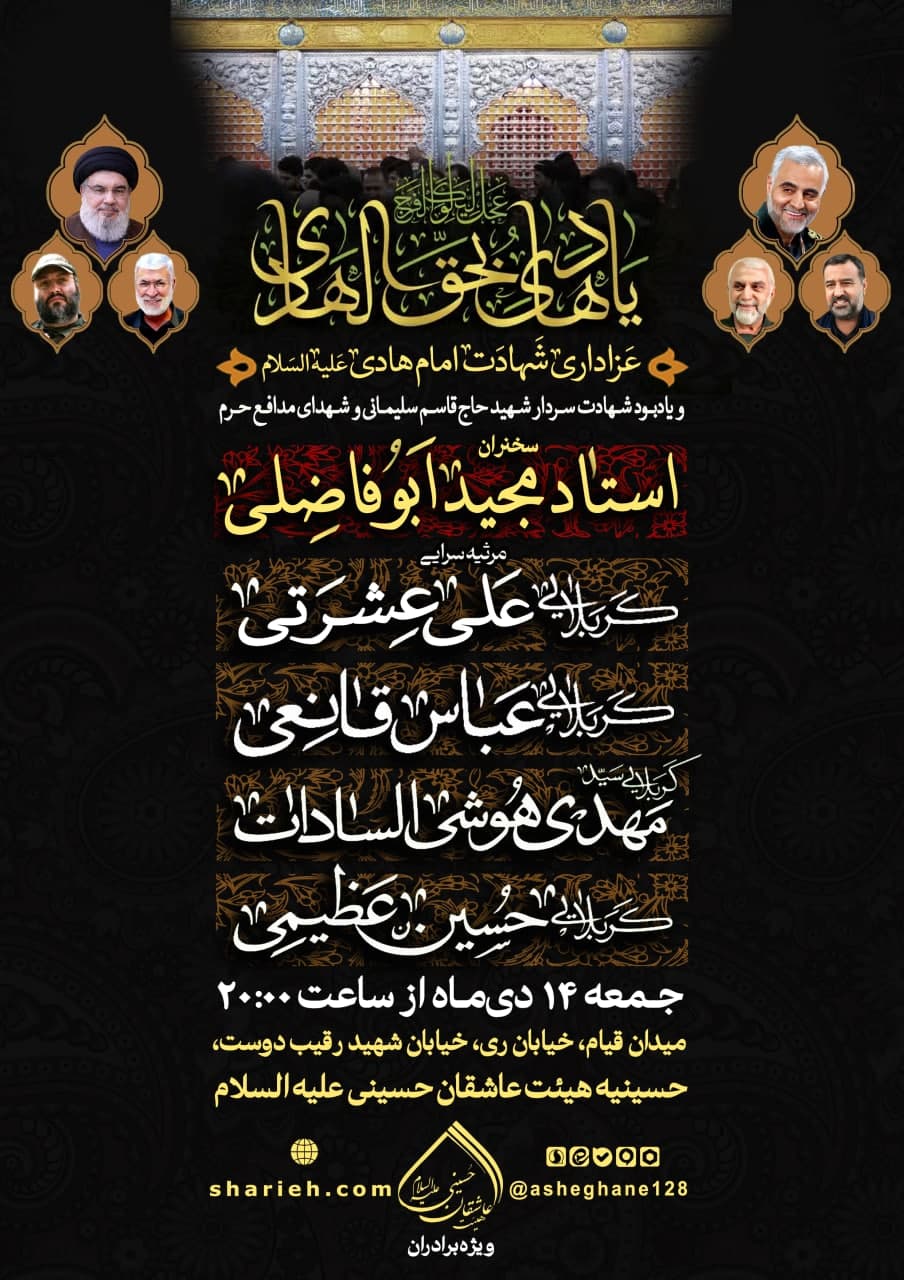 عجل الله تعالی فرجه
یا هادی بحق الهادی
عَزاداری شَهادَت امام هادی عَلیه السَلام
و یادبود شهادت سردار شهید حاج قاسم سلیمانی و شهدای مدافع حرم
سخنران
استاد مجید ابوفاضلی
مرثیه سرایی
کربلایی علی عشرتی
کربلایی عباس قانعی
کربلایی سید
مهدی هوشی السادات
کربلایی حسین عظیمی
جمعه ۱۴ دی‌ماه از ساعت ۲۰:۰۰
میدان قیام، خیابان ری، خیابان شهید رقیب دوست،
حسینیه هیئت عاشقان حسینی علیه السلام
@asheghane128
هیئت عاشقان حسینی علیه السلام
sharieh.com
ویژه برادران